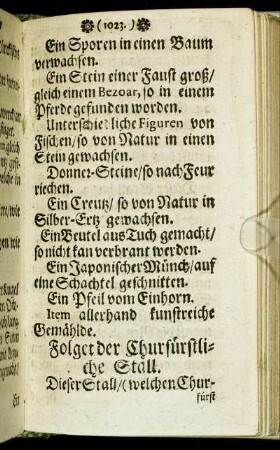 ( 1023. )
Ein Sporen in einen Baum
verwachsen.
Ein Stein einer Faust groß/
gleich einem Bezoar, so in einem
Pferde gefunden worden.
Unterschiedliche Figuren von
Fischen/so von Natur in einen
Stein gewachsen.
Donner-Steine/so nach Feur
riechen.
Ein Creutz/ so von Natur in
Silber-Ertz gewachsen.
Ein Beutel aus Tuch gemacht/
so nicht kan verbrant werden.
Ein Japonischer Münch/auf
eine Schachtel geschnitten.
Ein Pfeil vom Einhorn.
Item allerhand kunstreiche
Gemählde.
Folget der Churfürstli-
che Stall.
Dieser Stall/(welchen Chur-
fürst